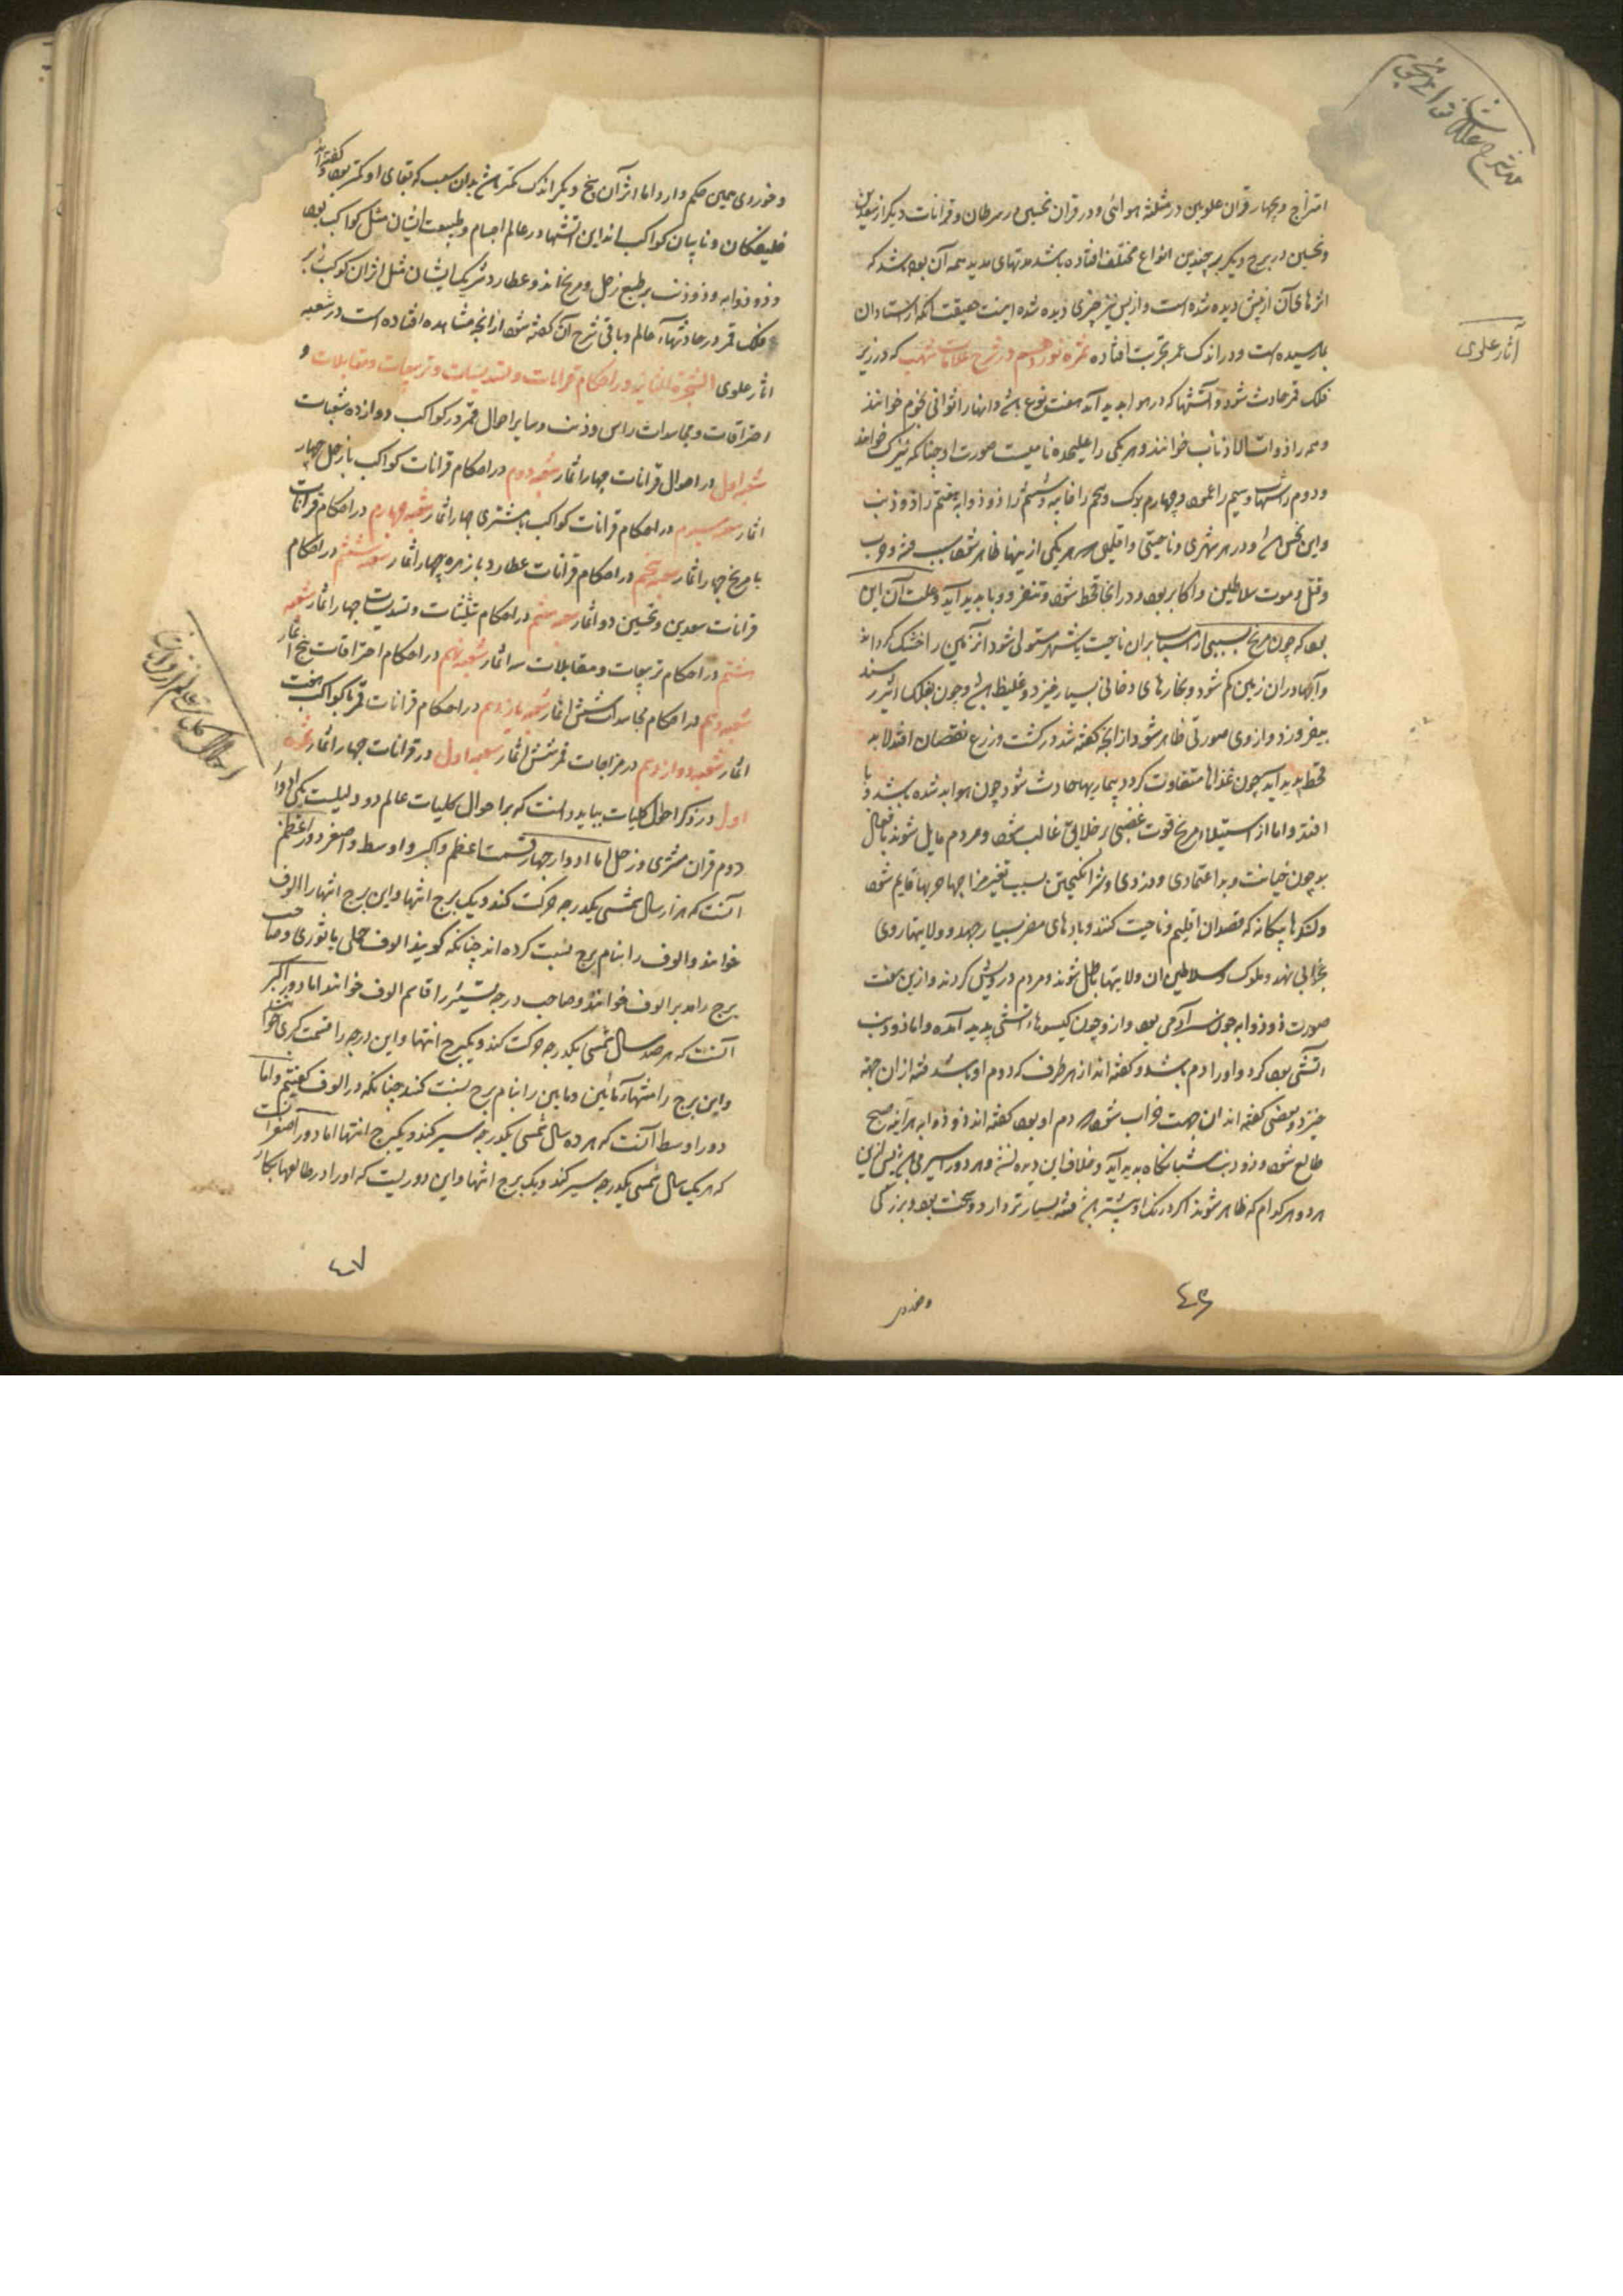 امتزاج و چهار قران علویین در مثلثه هوائی و در قران نحسین در سرطان و قرانات دیگر از سعدین
و نحسین در برج دیگر بر چندین انواع مختلف افتاده باشد مدتهای مدید همه آن بوده باشد که
اثرهای آن از پیش دیده شده است و از پس نیز چیزی دیده شده اینست حقیقت آنکه از استادان
بما رسیده است و در اندک عمر بتجربت افتاده ثمره نوزدهم در شرح علامات شهب که در زیر
فلک قمر حادث شود و آتشها که در هوا پدید آید هفت نوع باشد و انها را ثوانی نجوم خوانند
و همه را ذوات الاذناب خوانند و هر یکی را علیحده نامیست صورت او چنانکه نیزک خوانند
و دوم را شهاب و سیم را عمود و چهارم یوک و پنجم را و ششم را ذو ذوابه و هفتم را ذو ذنب
و این نحس است و در هر شهری و ناحیتی و اقلیمی که هر یکی از اینها ظاهر شود سبب فتنه و حرب
و قتل و موت سلاطین و اکابر بود و در انجا قحط شود و وبا پدید آید و علت آن این
بود که چون مریخ بسببی از اسباب بران ناحیت یا شهر مستولی شود انزمین را خشک گرداند
و آبها در ان زمین کم شود و بخارهای دخانی بسیار خیزد و غلیظ باشد و چون بفلک اثیر رسند
بیفروزد و از وی صورتی ظاهر شود از انچه گفته شد در کشت و زرع نقصان افتد لابد
قحط پدید آید چون غذاها متفاوت گردد بیماریها حادث شود چون هوا بد شده باشد وبا
افتد و اما از استیلاء مریخ قوت غضبی بر خلایق غالب شود و مردم مایل شوند بافعال
بد چون خیانت و بد اعتمادی و دزدی و شر انگیختن بسبب تغیر مزاجها حربها قایم شود
و لشکرها بیگانه که قصد ان اقلیم و ناحیت کنند و بادهای مضر بسیار جهد و ولایتها روی
بخرابی نهد و ملوک و سلاطین ان ولایتها باطل شوند و مردم درویش گردند و ازین هفت
صورت ذو ذوابه چون سر آدمی بود و از و چون گیسوهاء آتشی پدید آمده و اما ذو ذنب
آتشی بود گرد و او را دم باشد و گفته اند از هر طرف که دم او باشد فتنه از ان جهة
خیزد و بعضی گفته اند ان جهت خراب شود که دم او بود گفته اند ذو ذوابه هر آینه صبح
طالع شود و ذو ذنب شبانگاه پدید آید و خلاف این دیده نشد و هر دو را سیر می باشد پس ازین
هر دو هر کدام که ظاهر شوند اگر درنگ او بیشتر باشد فتنه بسیارتر دارد و سخت بود و بزرگی
آثار علوی
٤٦
و خوردی همین حکم دارد اما اثر آن پنج دیگر اندک کمتر باشد بدان سبب که بقای او کمتر بود و گفته اند
خلیفتگان و نایبان کواکب اند این آتشها در عالم اجسام و طبیعت ایشان مثل کواکب بود
و ذو ذوابه و ذو ذنب بر طبع زحل و مریخ اند و عطارد شریک ایشان مثل اثر ان کوکب در زیر
فلک قمر در حادثهاء عالم و باقی شرح آن گفته شود از انچه مشاهده افتاده است در شعبه
اثار علوی الشجرة الثانیه در احکام قرانات و تسدیسات و تربیعات و مقابلات و
احتراقات و مجاسدات راس و ذنب و سایر احوال قمر در کواکب دوازده شعبات
شعبه اول در احوال قرانات چهار اثمار شعبه دوم در احکام قرانات کواکب با زحل چهار
اثمار شعبه سیوم در احکام قرانات کواکب با مشتری چهار اثمار شعبه چهارم در احکام قرانات
با مریخ چهار اثمار شعبه پنجم در احکام قرانات عطارد با زهره چهار اثمار شعبه ششم در احکام
قرانات سعدین و نحسین دو اثمار شعبه هفتم در احکام تثلیثات و تسدیسات چهار اثمار شعبه
هشتم در احکام تربیعات و مقابلات سه اثمار شعبه نهم در احکام احتراقات پنج اثمار
شعبه دهم در احکام مجاسدات شش اثمار شعبه یازدهم در احکام قرانات قمر با کواکب هفت
اثمار شعبه دوازدهم در مزاجات قمر شش اثمار شعبه اول در قرانات چهار اثمار ثمره
اول در ذکر احوال کلیات بباید دانست که بر احوال کلیات عالم دو دلیلست یکی ادوار
دوم قران مشتری و زحل اما ادوار چهار قسمت اعظم و اکبر و اوسط و اصغر دور اعظم
آنست که هزار سال شمسی یکدرجه حرکت کند و یک برج انتها و این برج انتها را الوف
خوانند و الوف را بنام برج نسبت کرده اند چنانکه گویند الوف حملی یا ثوری و صاحب
برج را مدبر الوف خوانند و صاحب درجه تسییر را قاسم الوف خوانند اما دور اکبر
آنست که هر صد سال شمسی یکدرجه حرکت کند و یکبرج انتها و این درجه را قسمت کبری خوانند
و این برج را منتهاء مأتین و مابین را بنام برج نسبت کند چنانکه در الوف گفتیم و اما
دور اوسط آنست که هر ده سال شمسی یکدرجه سیر کند و یکبرج انتها اما دور اصغر آنست
که هر یک سال شمسی یکدرجه سیر کند و یک برج انتها و این دوریست که او را در طالعها بکار
٤٧